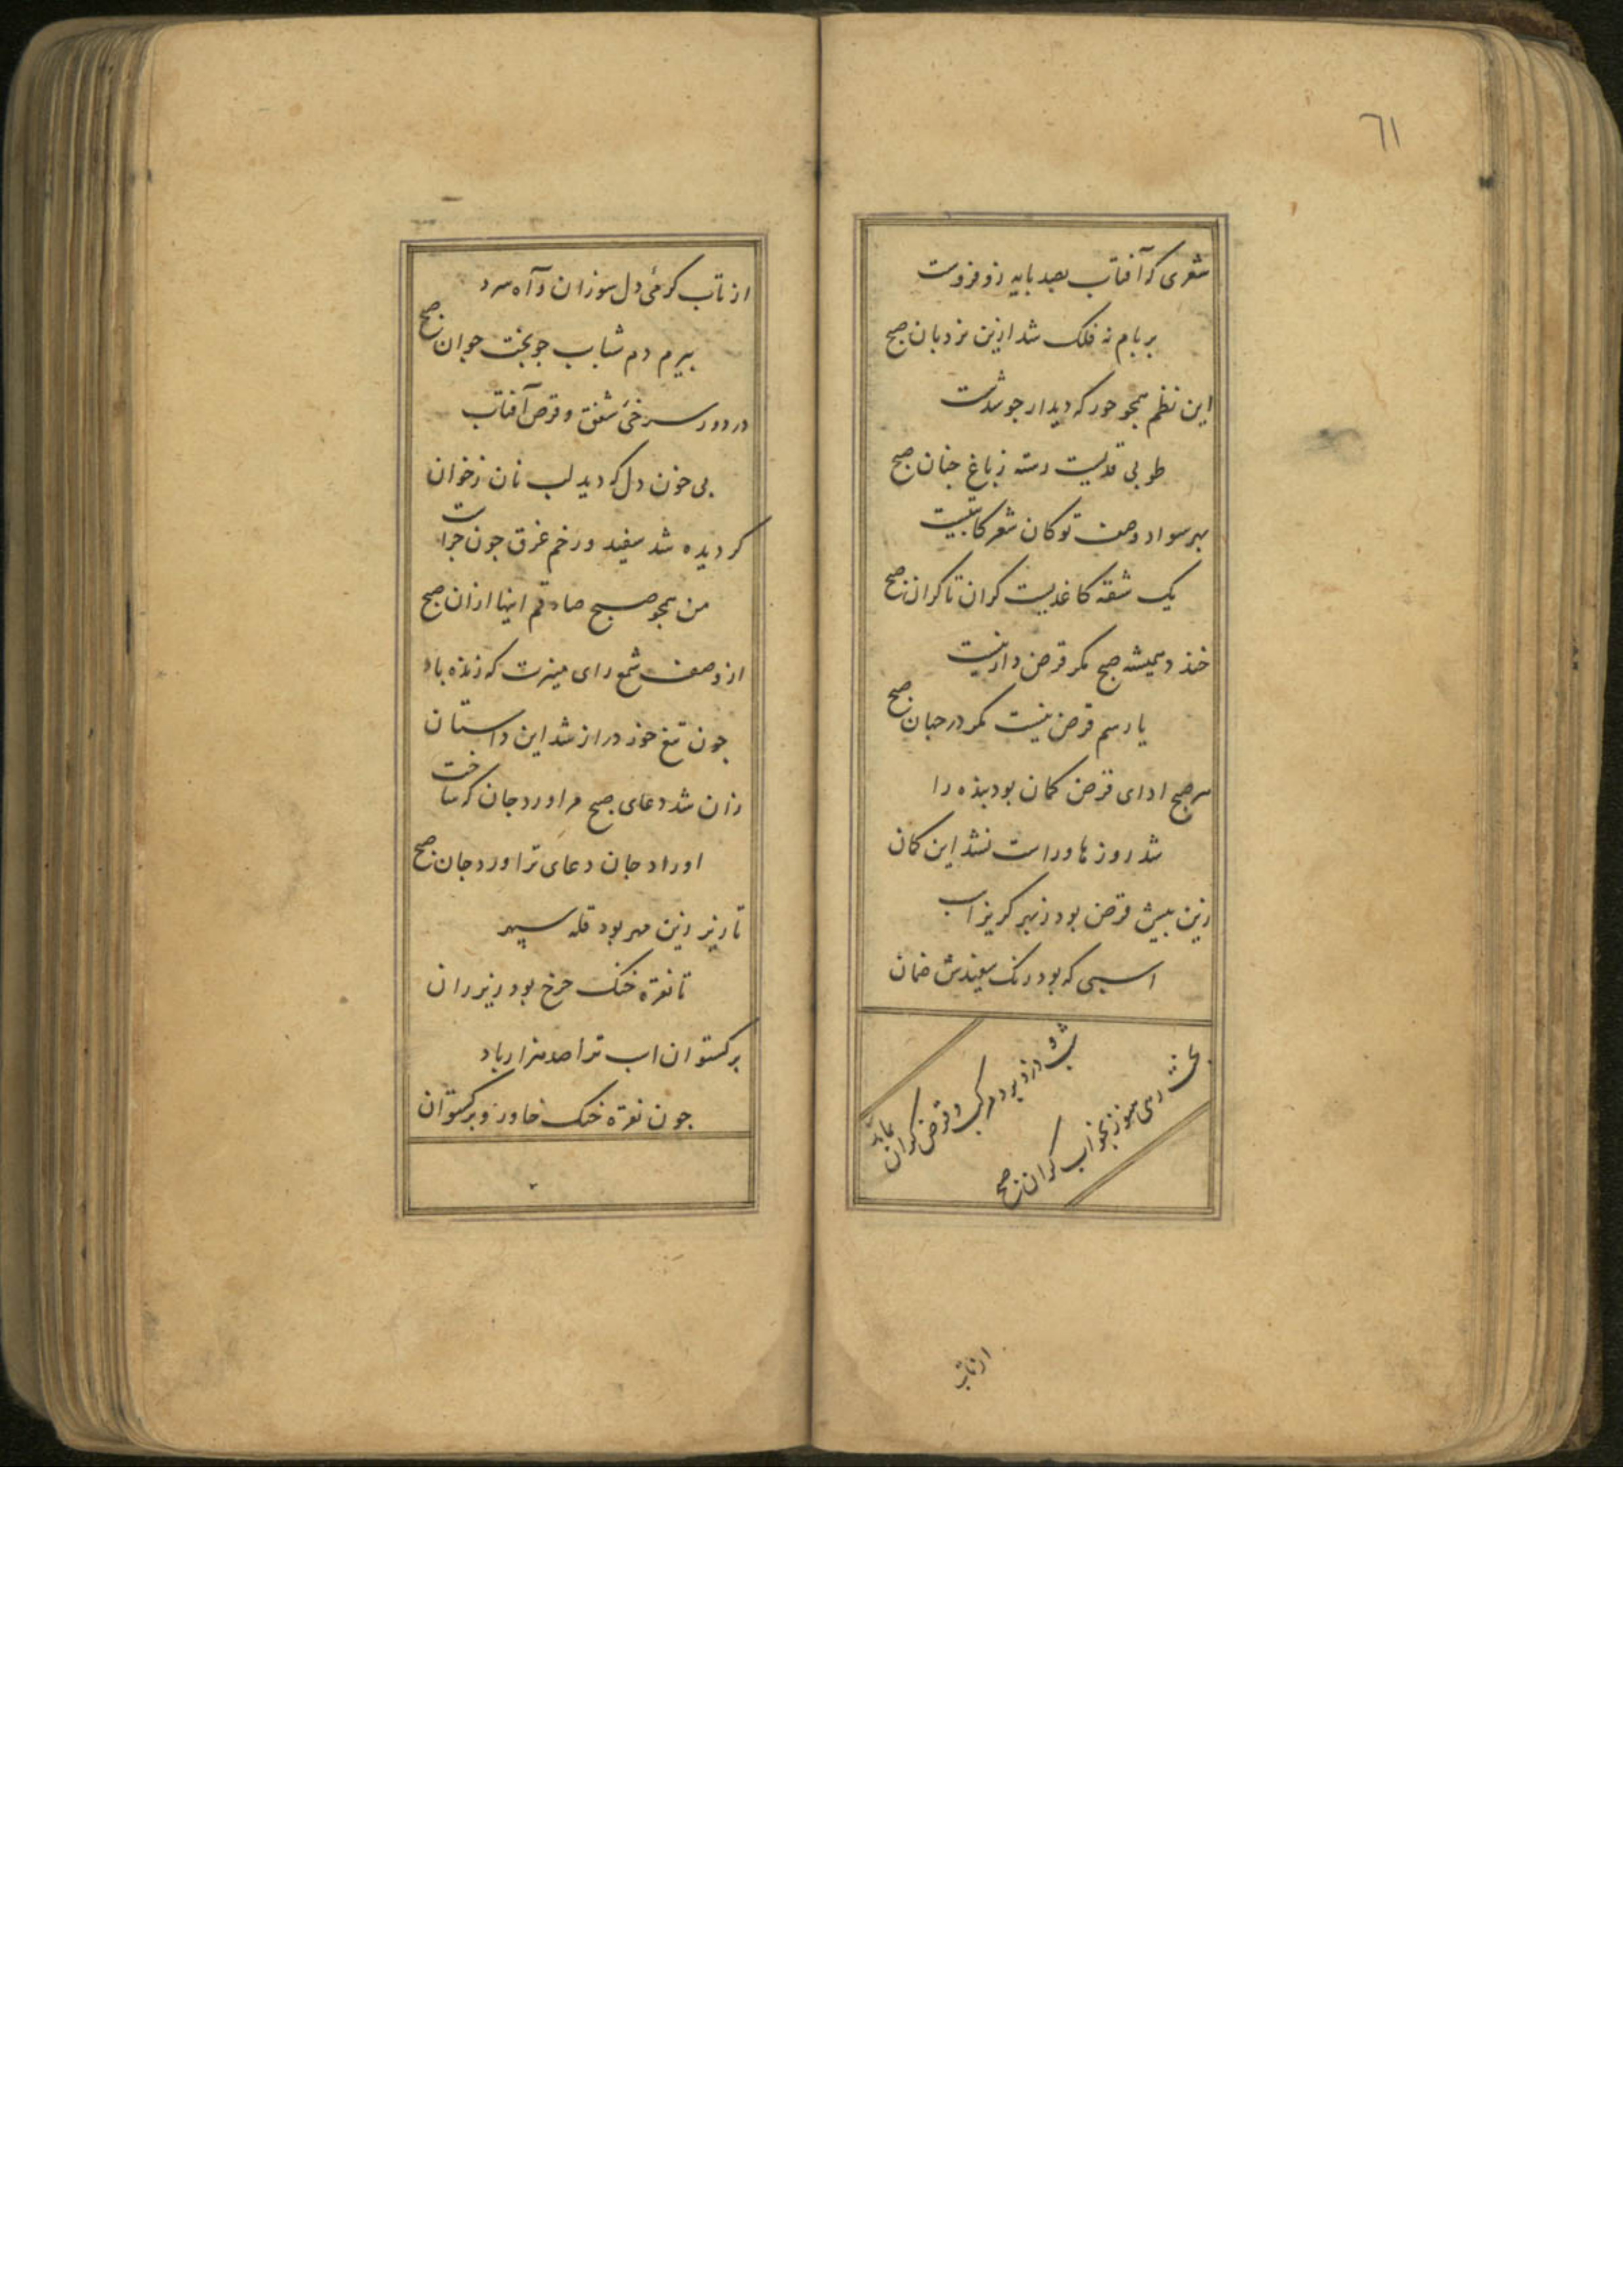 ٦١
شعری که آفتاب بصد پایه زو فروست
بر بام نه فلک شد ازین نردبان صبح
این نظم همجو حور که دیدار جو شدست
طوبی قدیست رسته ز باغ جنان صبح
بهر سواد وصف تو کان شعر کاتبیست
یک شقه کاغذیست کران تا کران صبح
خندد همیشه صبح مکر قرض دار نیست
یا رسم قرض نیست مکر در جهان صبح
هر صبح ادای قرض کمان بود بنده را
شد روزها و راست نشد این کمان
زین بیش قرض بود ز بهر کریز اسب
اسبی که بود رنک سفیدش ضمان
شب دزد برد مرکب و قرض کران بماند
بختش رهی هنوز بخواب کران صبح
از تاب
از تاب کرمی دل سوزان و آه سرد
پیرم دم شباب جو بخت جوان صبح
در دور سرخی شفق و قرص آفتاب
بی خون دل که دید لب نان ز خوان
کر دیده شد سفید و رخم غرق خون جراست
من همجو صبح صادقم اینها ازان صبح
از وصف شمع رای منیرت که زنده باد
جون تیغ خور دراز شد این داستان
زان شد دعای صبح مرا ورد جان که ساخت
اوراد جان دعای ترا ورد جان صبح
تا زیر زین مهر بود قله سپهر
تا نقره خنک جرخ بود زیر ران
برکستوان اسب ترا صد هزار باد
جون نقره خنک خاور و برکستوان